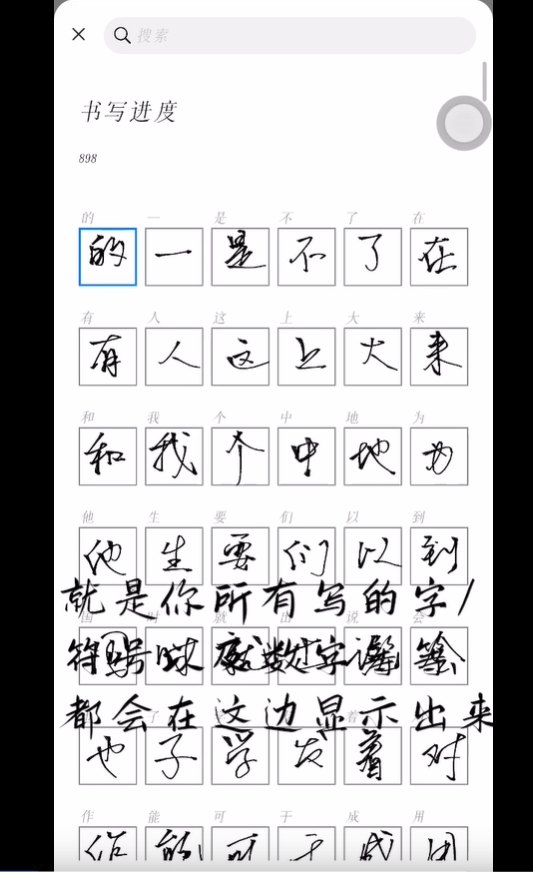 搜索
书写进度
898
的 一 是 不 了 在
的 一 是 不 了 在
有 人 这 上 大 来
有 人 这 上 大 来
和 我 个 中 地 为
和 我 个 中 地 为
他 生 要 们 以 到
他 生 要 们 以 到
就是你所有写的字/
国 时 就 出 说 会
符号 数字
都会在这边显示出来
也 子 学 发 着 对
也 子 学 发 着 对
作 能 可 于 成 用
作 能 可 于 成 用